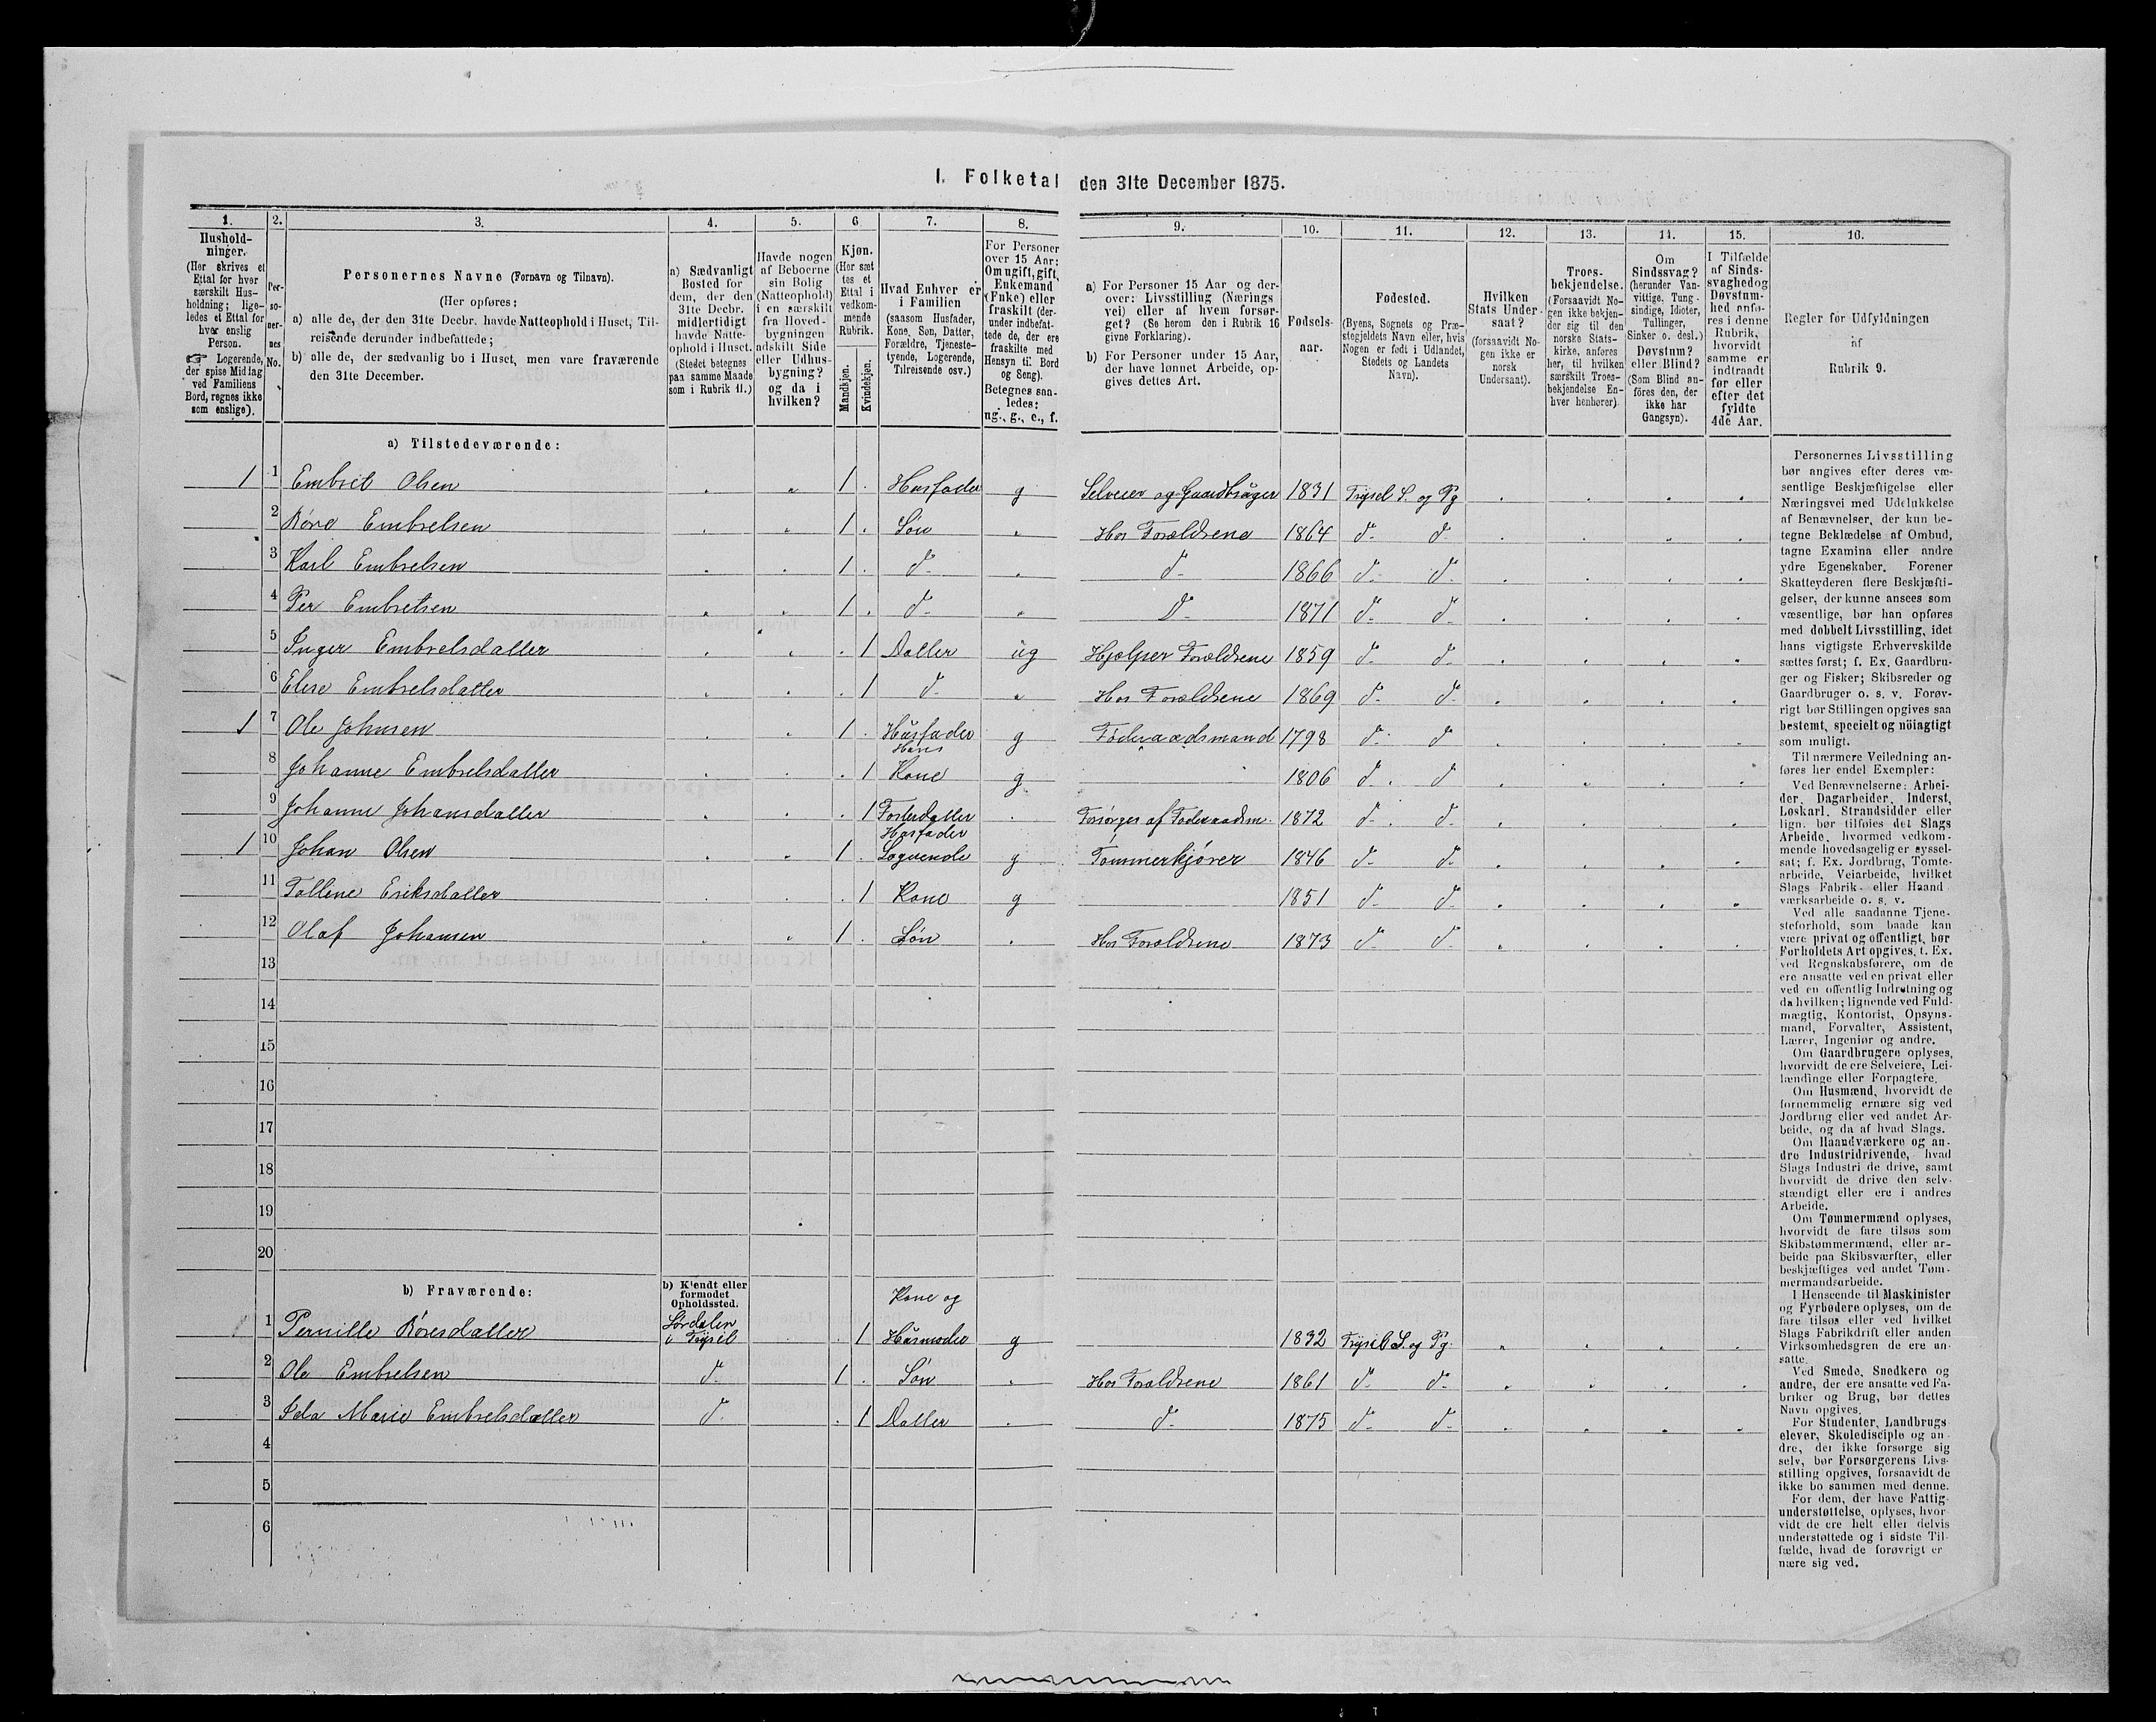 I. Folketal den 31te December 1875.
1. 2. 3. 4. 5. 6. 7. 8. 9. 10. 11. 12. 13. 14. 15. 16.
Husholdninger.
(Her skrives et
Ettal for hver
særskilt Hus-
holdning; lige-
ledes et Ettal for
hver enslig
Person.
☞ Logerende,
der spise Middag
ved Familiens
Bord, regnes ikke
som enslige).
Per-
so-
ner-
nes
No.
Personernes Navne (Fornavn og Tilnavn).
(Her opføres:
a) alle de, der den 31te Decbr. havde Natteophold i Huset, Til-
reisende derunder indbefattede;
b) alle de, der sædvanlig bo i Huset, men vare fraværende
den 31te December.
a) Sædvanligt
Bosted for
dem, der den
31te Decbr.
midlertidigt
havde Natte-
ophold i Huset.
(Stedet betegnes
paa samme Maade
som i Rubrik 11.)
Havde nogen
af Beboerne
sin Bolig
(Natteophold)
i en særskilt
fra Hoved-
bygningen
adskilt Side
eller Udhus-
bygning?
og da i
hvilken?
Kjøn.
(Her sæt
tes et
Ettal i
vedkom-
mende
Rubrik.
Mandkjøn.
Kvindekjøn.
Hvad Enhver er
i Familien
(saasom Husfader,
Kone, Søn, Datter,
Forældre, Tjeneste-
tyende, Logerende,
Tilreisende osv.)
For Personer
over 15 Aar:
Om ugift, gift,
Enkemand
(Enke) eller
fraskilt (der-
under indbefat-
tede de, der ere
fraskilte med
Hensyn til Bord
og Seng).
Betegnes saa-
ledes:
ug., g., e., f.
a) For Personer 15 Aar og der-
over: Livsstilling (Nærings
vei) eller af hvem forsør-
get? (Se herom den i Rubrik 16
givne Forklaring).
b) For Personer under 15 Aar,
der have lønnet Arbeide, op-
gives dettes Art.
Fødsels-
aar.
Fødested.
(Byens, Sognets og Præ-
stegjeldets Navn eller, hvis
Nogen er født i Udlandet,
Stedets og Landets
Navn).
Hvilken
Stats Under-
saat?
(forsaavidt No-
gen ikke er
norsk
Undersaat).
Troes-
bekjendelse.
(Forsaavidt No-
gen ikke bekjen-
der sig til den
norske Stats-
kirke, anføres
her, til hvilken
særskilt Troes-
bekjendelse En-
hver henhører).
Om
Sindssvag?
(herunder Van-
vittige, Tung-
sindige, Idioter,
Tullinger,
Sinker o. desl.)
Døvstum?
eller Blind?
(Som Blind an-
føres den, der
ikke har
Gangsyn).
I Tilfælde
af Sinds-
svaghed og
Døvstum-
hed anfø-
res i denne
Rubrik,
hvorvidt
samme er
indtraadt
før eller
efter det
fyldte
4de Aar.
Regler for Udfyldningen
af
Rubrik 9.
a) Tilstedeværende:
1 1 Embret Olsen 1 Husfader g Selveier og Gaardbrüger 1831 Trysel S. og Pg
2 Röre Embretsen 1 Søn Hos Forældrene 1864 do do
3 Karl Embretsen 1 do do 1866 do do
4 Per Embretsen 1 do Do 1871 do do
5 Inger Embretsdatter 1 Datter üg Hjælper Forældrene 1859 do do
6 Elise Embretsdatter 1 do Hos Forældrene 1869 do do
1 7 Ole Johnsen 1 Hüsfader g Föderaadsmand 1798 do do
8 Johanne Embretsdatter 1 Hans Kone g 1806 do do
9 Johanne Johansdatter 1 Fosterdatter Forsørges af Föderaadsm. 1872 do do
1 10 Johan Olsen 1 Husfader Logerende g Tømmerkjører 1846 do do
11 Tollene Eriksdatter 1 Kone g 1851 do do
12 Olaf Johansen 1 Søn Hos Forældrene 1873 do do
13
14
15
16
17
18
19
20
b) Fraværende:
b) Kjendt eller
formodet
Opholdssted.
1 Pernille Röresdatter Sørdalen i Trysil 1 Kone og Hüsmoder g 1832 Trysil S. og Pg.
2 Ole Embretsen do 1 Søn Hos Forældrene 1861 do do
3 Ida Marie Embretsdatter do 1 Datter do 1875 do do
4
5
6
Personernes Livsstilling
bør angives efter deres væ-
sentlige Beskjæftigelse eller
Næringsvei med Udelukkelse
af Benævnelser, der kun be-
tegne Beklædelse af Ombud,
tagne Examina eller andre
ydre Egenskaber. Forener
Skatteyderen flere Beskjæfti-
gelser, der kunne ansees som
væsentlige, bør han opføres
med dobbelt Livsstilling, idet
hans vigtigste Erhvervskilde
sættes først; f. Ex. Gaardbru-
ger og Fisker; Skibsreder og
Gaardbruger o. s. v. Forøv-
rigt bør Stillingen opgives saa
bestemt, specielt og nöiagtigt
som muligt.
Til nærmere Veiledning an-
føres her endel Exempler:
Ved Benævnelserne: Arbei-
der, Dagarbeider, Inderst,
Løskarl, Strandsidder eller
lign. bør tilføies det Slags
Arbeide, hvormed vedkom-
mende hovedsagelig er syssel-
sat; f. Ex. Jordbrug, Tomte-
arbeide, Veiarbeide, hvilket
Slags Fabrik- eller Haand
værksarbeide o. s. v.
Ved alle saadanne Tjene-
steforhold, som baade kan
være privat og offentligt, bør
Forholdets Art opgives, t. Ex.
ved Regnskabsførere, om de
ere ansatte ved en privat eller
ved en offentlig Indretning og
da hvilken; lignende ved Fuld-
mægtig, Kontorist, Opsyns-
mand, Forvalter, Assistent,
Lærer, Ingeniør og andre.
Om Gaardbrugere oplyses,
hvorvidt de ere Selveiere, Lei-
lændinge eller Forpagtere.
Om Husmænd, hvorvidt de
fornemmelig ernære sig ved
Jordbrug eller ved andet Ar-
beide, og da af hvad Slags.
Om Haandværkere og an-
dre Industridrivende, hvad
Slags Industri de drive, samt
hvorvidt de drive den selv-
stændigt eller ere i andres
Arbeide.
Om Tømmermænd oplyses,
hvorvidt de fare tilsøs som
Skibstømmermænd, eller ar-
beide paa Skibsværfter, eller
beskjæftiges ved andet Tøm-
mermandsarbeide.
I Henseende til Maskinister
og Fyrbødere oplyses, om de
fare tilsøs eller ved hvilket
Slags Fabrikdrift eller anden
Virksomhedsgren de ere an-
satte.
Ved Smede, Snedkere og
andre, der ere ansatte ved Fa-
briker og Brug, bør dettes
Navn opgives.
For Studenter, Landbrugs
elever, Skoledisciple og an-
dre, der ikke forsørge sig
selv, bør Forsørgerens Livs-
stilling opgives, forsaavidt de
ikke bo sammen med denne.
For dem, der have Fattig-
understøttelse, oplyses, hvor-
vidt de ere helt eller delvis
understøttede og i sidste Til-
fælde, hvad de forøvrigt er
nære sig ved.